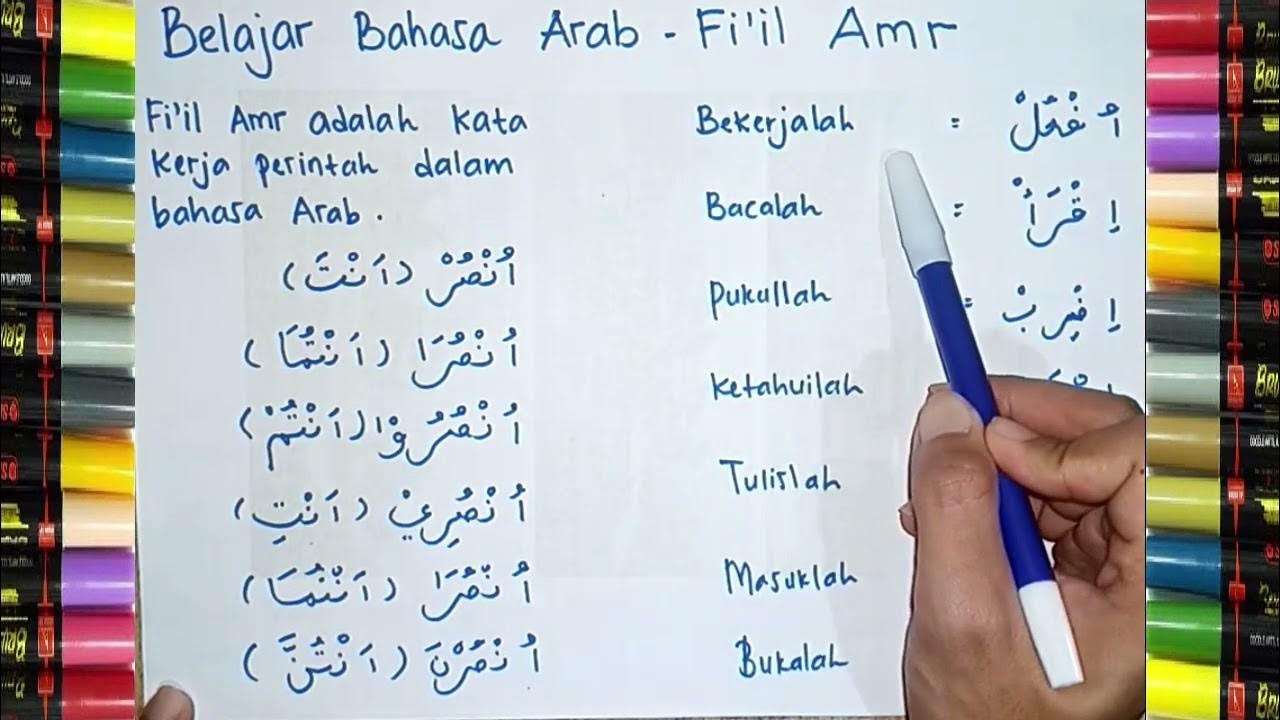 Belajar Bahasa Arab - Fi'il Amr
Fi'il Amr adalah kata
kerja perintah dalam
bahasa Arab.
اُنْصُرْ (اَنْتَ)
اُنْصُرَا (اَنْتُمَا)
اُنْصُرُوْا (اَنْتُمْ)
اُنْصُرِيْ (اَنْتِ)
اُنْصُرَا (اَنْتُمَا)
اُنْصُرْنَ (اَنْتُنَّ)
Bekerjalah = اُفْعُلْ
Bacalah = اِقْرَأْ
Pukullah = اِضْرِبْ
Ketahuilah
Tulislah
Masuklah
Bukalah